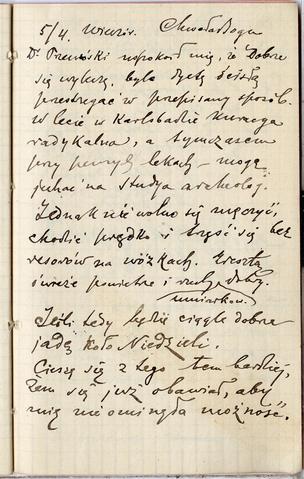 5/4. Wieczór. Chwała Bogu
Dr uspokoił mię, że Dobrze
się wyleczę, byle Dyetę ścisłą
przestrzegać w przepisany sposób.
W lecie w Karlsbadzie kuracya
radykalna, a tymczasem
przy pewnych lekach – mogę
jechać na studya archeolog.
Jednak nie wolno się męczyć,
chodzić prędko i trząść się bez
resorów na wózkach. Zresztą
świeże powietrze i ruch dobry.
umiarkow.
Jeśli tedy będzie ciągle dobrze
jadę koło Niedzieli.
Cieszę się z tego tem bardziej,
żem się już obawiał, aby
mię nie ominęła możność.